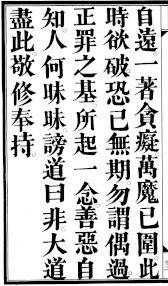 自遠一著貪癡萬魔已圍此
時欲破恐已無期勿謂偶過
正罪之基所起一念善惡自
知人何昧昧謗道曰非大道
盡此敬修奉持。